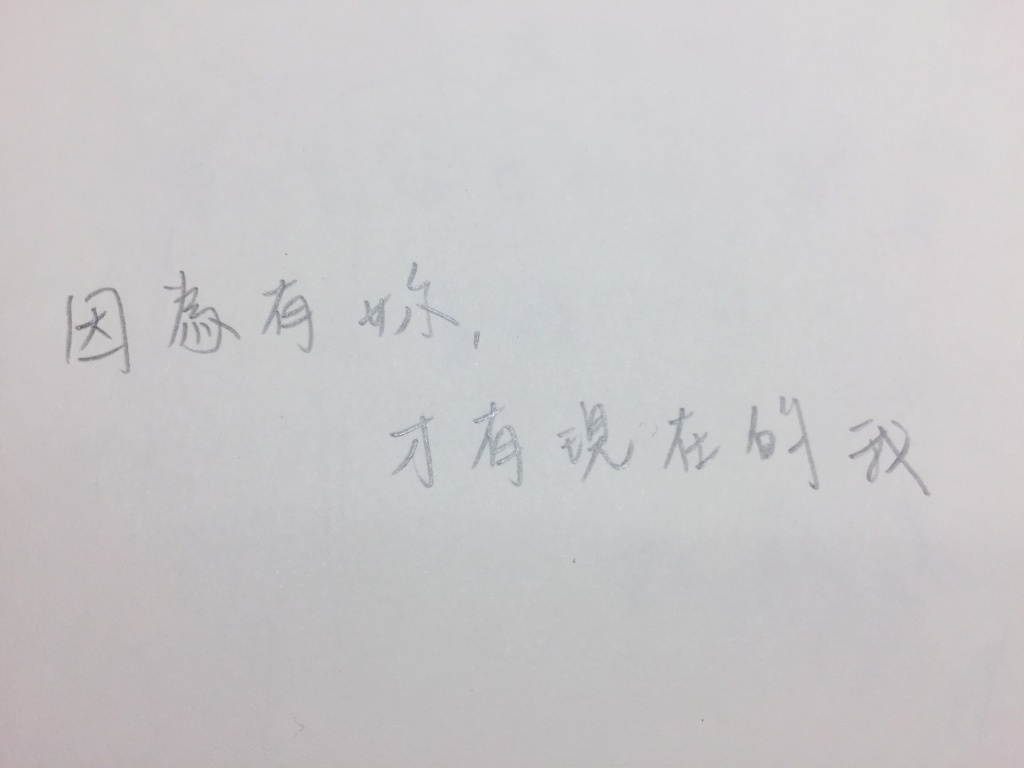 因為有妳,
才有現在的我